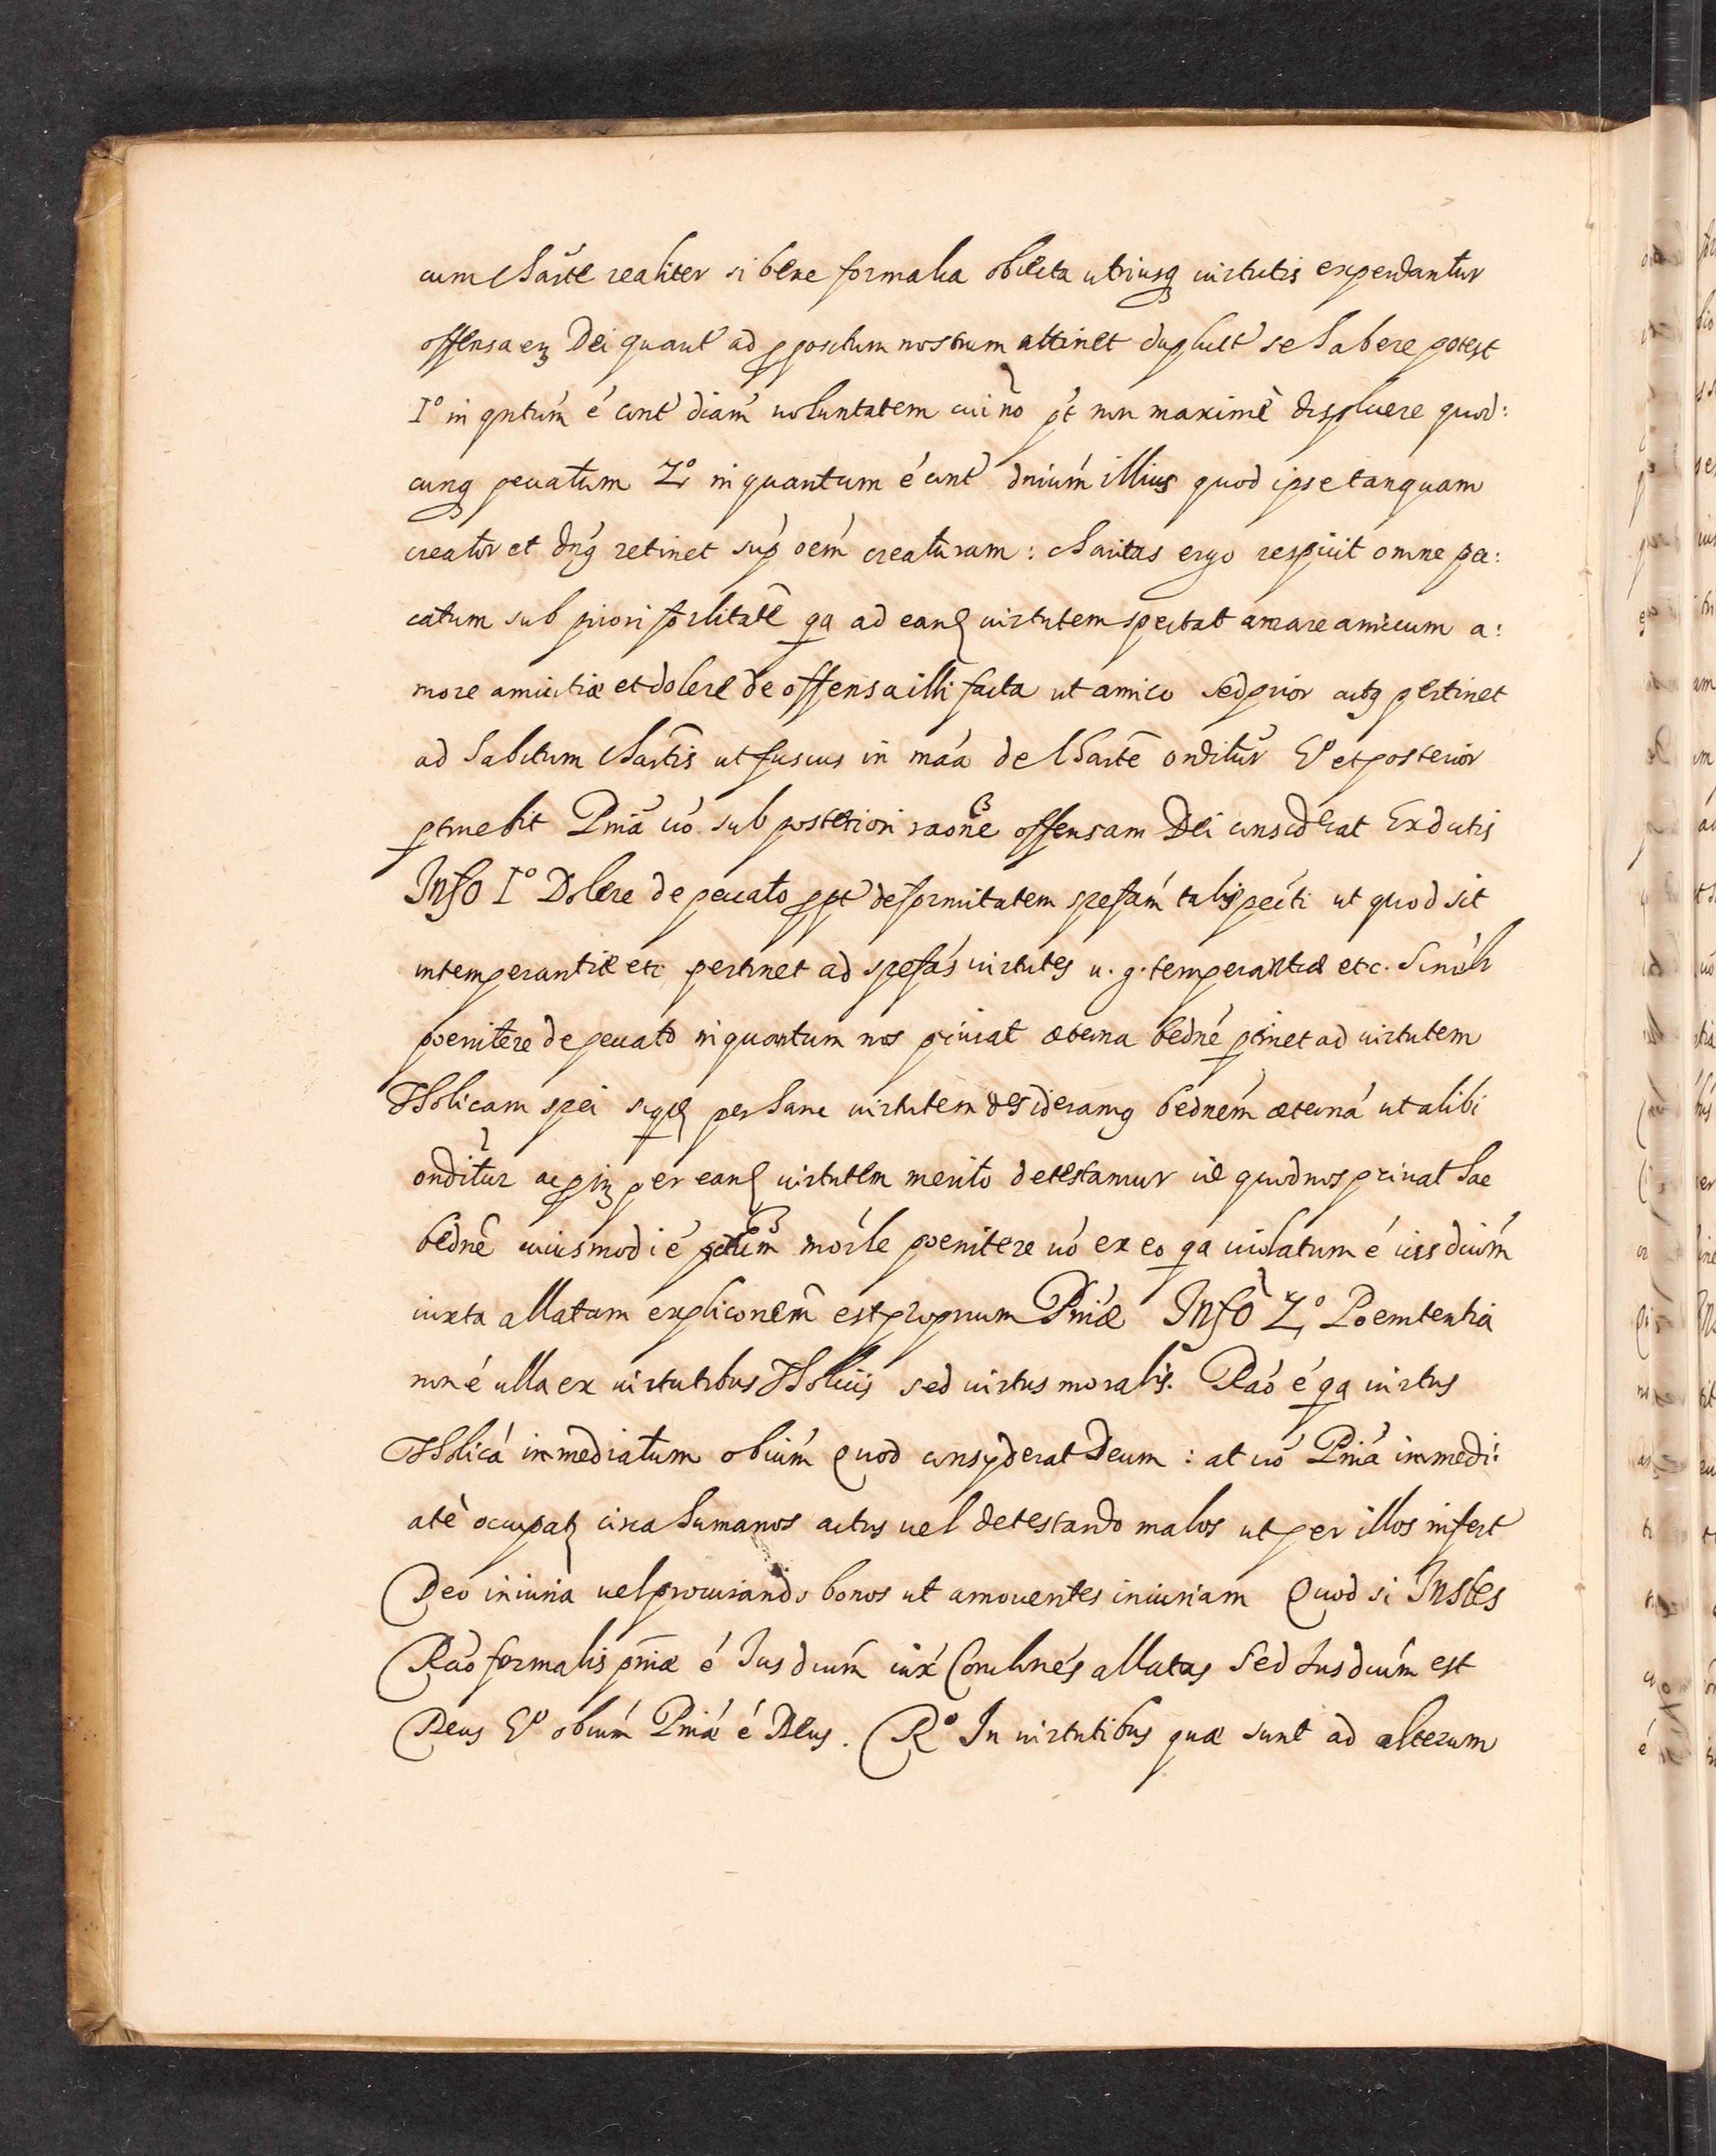 cum charte realiter si bene formalia obiecta utriusq uirtutis expendantur
offensa enĩ Dei quant' ad ppositum nostrum attinet duplict' se habere potest
1º in qntúm é cont' diam' uoluntatem cui nõ pt non maximè displicere quod:
cunq peccatum 2º in quantum é cont' dniúm illius quod ipse tanquam
creator et dñs retinet sup' oém creaturam: charitas ergo respicit omne pec:
catum sub priori forlitate qa ad eand uirtutem spectat amare amicum a:
more amicitiæ et dolere de offensa illi facta ut amico sed prior actq pertinet
ad habitum chartis ut fusius in maá de charte onditur Eº et posterior
ptinebit Pniá uó sub posteriori raone offensam Dei considerat Ex dictis
Infº 1º Dolere de peccato ppt deformitatem spefám talis peéti ut quod sit
intemperantiæ etc pertinet ad spefás uirtutes u.g. temperantiæ etc. Simílr
poenitere de peccato in quantum nos priuat æterna bedné ptinet ad uirtutem
Thólicam spei siqd per hanc uirtutem desideramq bedném æterná ut alibi
onditur per eand uirtutem merito detestamur id quod nos priuat hac
bedné cuiusmodi é pctúm mórle poenitere uó ex eo qa uiolatum é ius diuím
iuxta allatam expliconem est proprium Pniæ Infº 2º Poenitentia
non é ulla ex uirtutibus Thólicis sed uirtus moralis. Raó é qa uirtus
Thólicá immediatum obiúm Quod consyderat Deum: at uó Pniá immedi:
atè occupatr circa humanos actus uel detestando malos ut per illos infert'
Deo iniuria uel procurando bonos ut amouentes iniuriam Quod si Instes
Raó formalis pniæ é Ius diuím iux' Conclunés allatas Sed Ius diuím est
Deus Eº obiúm Pniæ é Deus. Rº In uirtutibus quæ sunt ad alterum